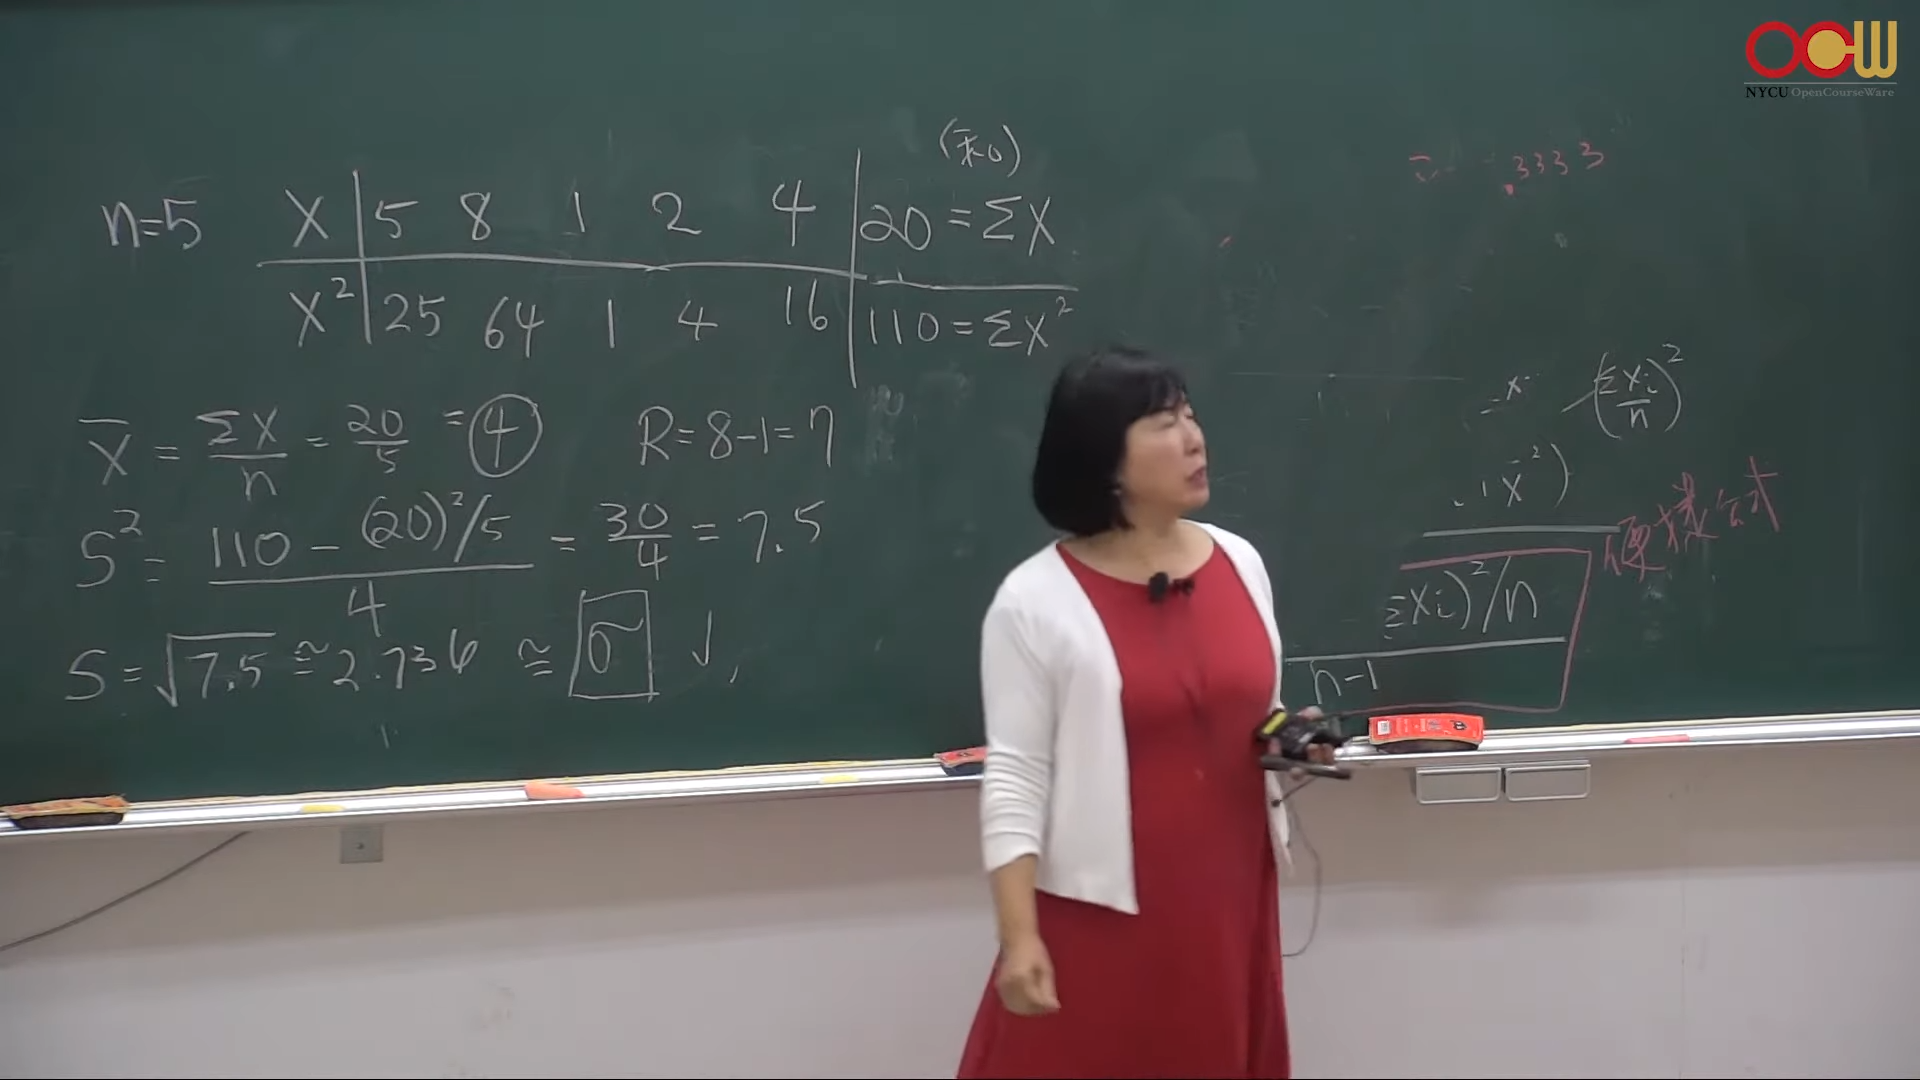 OCW
NYCU OpenCourseWare
(和)
n=5
X | 5 8 1 2 4 | 20 = ΣX
X² | 25 64 1 4 16 | 110 = ΣX²
X̄ = ΣX/n = 20/5 = 4
R = 8-1 = 7
S² = (110 - (20)²/5)/4 = 30/4 = 7.5
S = √7.5 ≅ 2.736 ≅ σ ✓
.3333
(Σxi/n)²
X̄²)
Σxi)²/n
n-1
公式